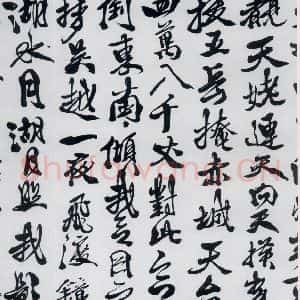 天姥連天向天橫
拔五岳掩赤城天台
四萬八千丈對此
倒東南傾我
吳越一夜飛渡鏡
湖水月湖月照我影
Shufawang.CN